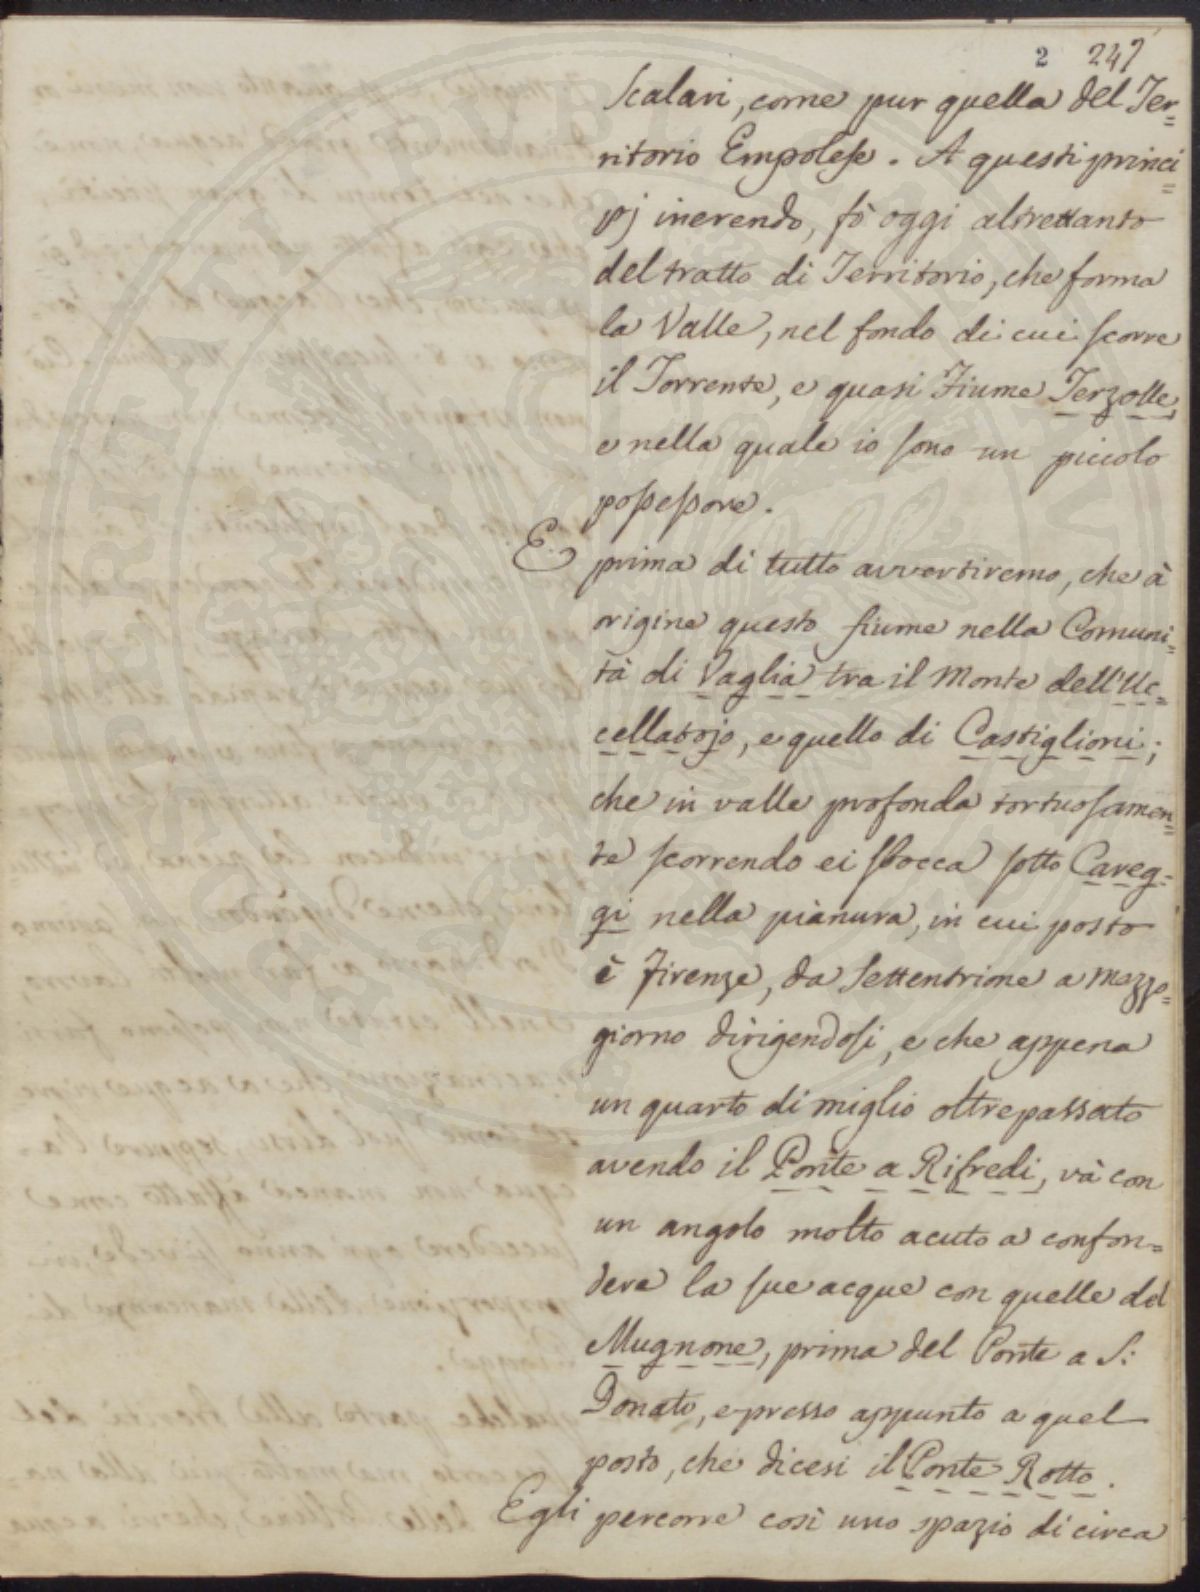 2 247
Scalari, come pur quella del Ter=
ritorio Empolese. A questi princi=
pj inerendo, fò oggi altrettanto
del tratto di Territorio, che forma
la Valle, nel fondo di cui scorre
il Torrente, e quasi Fiume Terzolle,
e nella quale io sono un piccolo
possessore.
E prima di tutto avvertiremo, che à
origine questo fiume nella Comuni=
tà di Vaglia tra il Monte dell'Uc=
cellatojo, e quello di Castiglioni;
che in valle profonda tortuosamen=
te scorrendo ei sbocca sotto Careg=
gi nella pianura, in cui posto
è Firenze, da Settentrione a mezzo=
giorno dirigendosi, e che appena
un quarto di miglio oltrepassato
avendo il Ponte a Rifredi, và con
un angolo molto acuto a confon=
dere la sue acque con quelle del
Mugnone, prima del Ponte a S:
Donato, e presso appunto a quel
posto, che dicesi il Ponte Rotto.
Egli percorre così uno spazio di circa